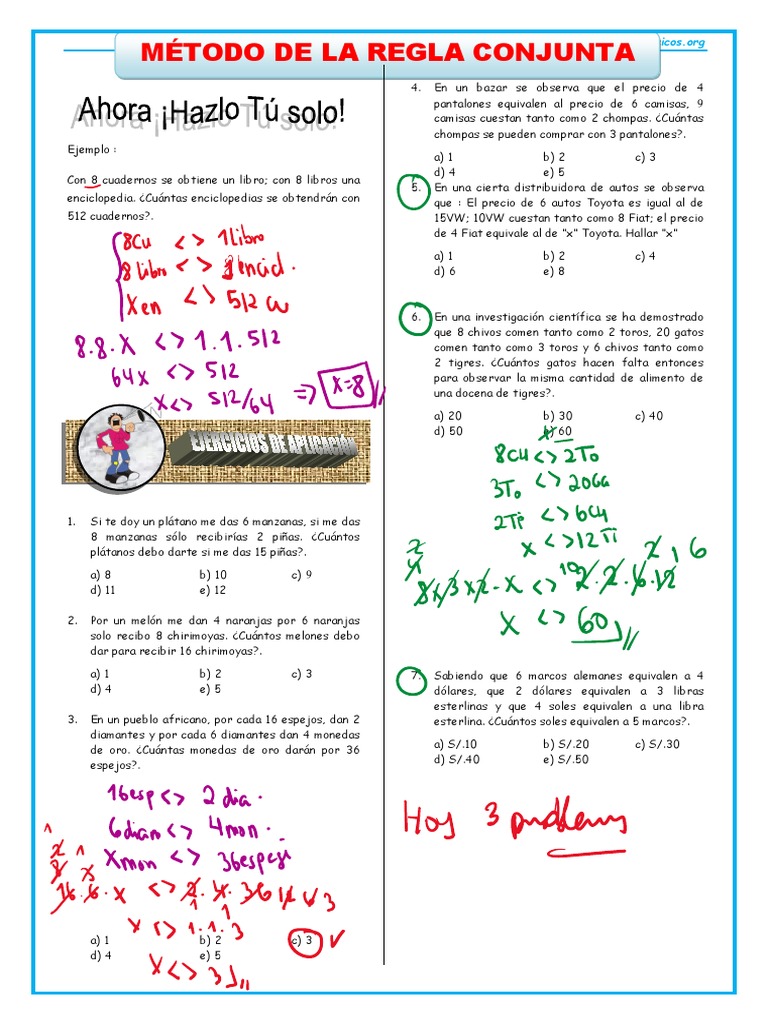 icos.org
MÉTODO DE LA REGLA CONJUNTA
Ahora ¡Hazlo Tú solo!
Ejemplo :
Con 8 cuadernos se obtiene un libro; con 8 libros una
enciclopedia. ¿Cuántas enciclopedias se obtendrán con
512 cuadernos?.
8Cu <> 1 libro
8 libro <> 1 encid.
X en <> 512 cu
8.8.X <> 1.1.512
64x <> 512
x <> 512/64 => x=8
EJERCICIOS DE APLICACIÓN
1. Si te doy un plátano me das 6 manzanas, si me das
8 manzanas sólo recibirías 2 piñas. ¿Cuántos
plátanos debo darte si me das 15 piñas?.
a) 8 b) 10 c) 9
d) 11 e) 12
2. Por un melón me dan 4 naranjas por 6 naranjas
solo recibo 8 chirimoyas. ¿Cuántos melones debo
dar para recibir 16 chirimoyas?.
a) 1 b) 2 c) 3
d) 4 e) 5
3. En un pueblo africano, por cada 16 espejos, dan 2
diamantes y por cada 6 diamantes dan 4 monedas
de oro. ¿Cuántas monedas de oro darán por 36
espejos?.
16esp <> 2 dia.
6diam <> 4mon.
Xmon <> 36espeji
16.6.x <> 2.4.36 12 6 3
x <> 1.1.3
a) 1 b) 2 c) 3
d) 4 e) 5
x <> 3
4. En un bazar se observa que el precio de 4
pantalones equivalen al precio de 6 camisas, 9
camisas cuestan tanto como 2 chompas. ¿Cuántas
chompas se pueden comprar con 3 pantalones?.
a) 1 b) 2 c) 3
d) 4 e) 5
5. En una cierta distribuidora de autos se observa
que : El precio de 6 autos Toyota es igual al de
15VW; 10VW cuestan tanto como 8 Fiat; el precio
de 4 Fiat equivale al de "x" Toyota. Hallar "x"
a) 1 b) 2 c) 4
d) 6 e) 8
6. En una investigación científica se ha demostrado
que 8 chivos comen tanto como 2 toros, 20 gatos
comen tanto como 3 toros y 6 chivos tanto como
2 tigres. ¿Cuántos gatos hacen falta entonces
para observar la misma cantidad de alimento de
una docena de tigres?.
a) 20 b) 30 c) 40
d) 50 60
8CH <> 2To
3To <> 20Ga
2Ti <> 6CH
x <> 12Ti
x <> 60
7. Sabiendo que 6 marcos alemanes equivalen a 4
dólares, que 2 dólares equivalen a 3 libras
esterlinas y que 4 soles equivalen a una libra
esterlina. ¿Cuántos soles equivalen a 5 marcos?.
a) S/.10 b) S/.20 c) S/.30
d) S/.40 e) S/.50
Hoy 3 problems